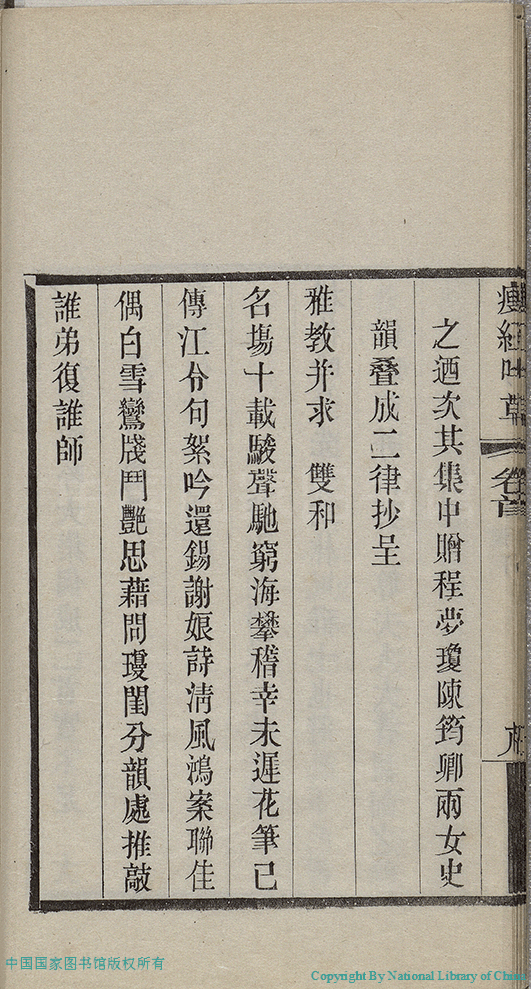 卷首
之迺次其集中贈程夢瓊陳筠卿兩女史
韻叠成二律抄呈
雅教并求　雙和
名塲十載駿聲馳窮海攀稽幸未遲花筆已
傳江令句絮吟還錫謝娘詩淸風鴻案聯佳
偶白雪鸞牋鬥豔思藉問瓊閨分韻處推敲
誰弟復誰師
中国国家图书馆版权所有
Copyright By National Library of China